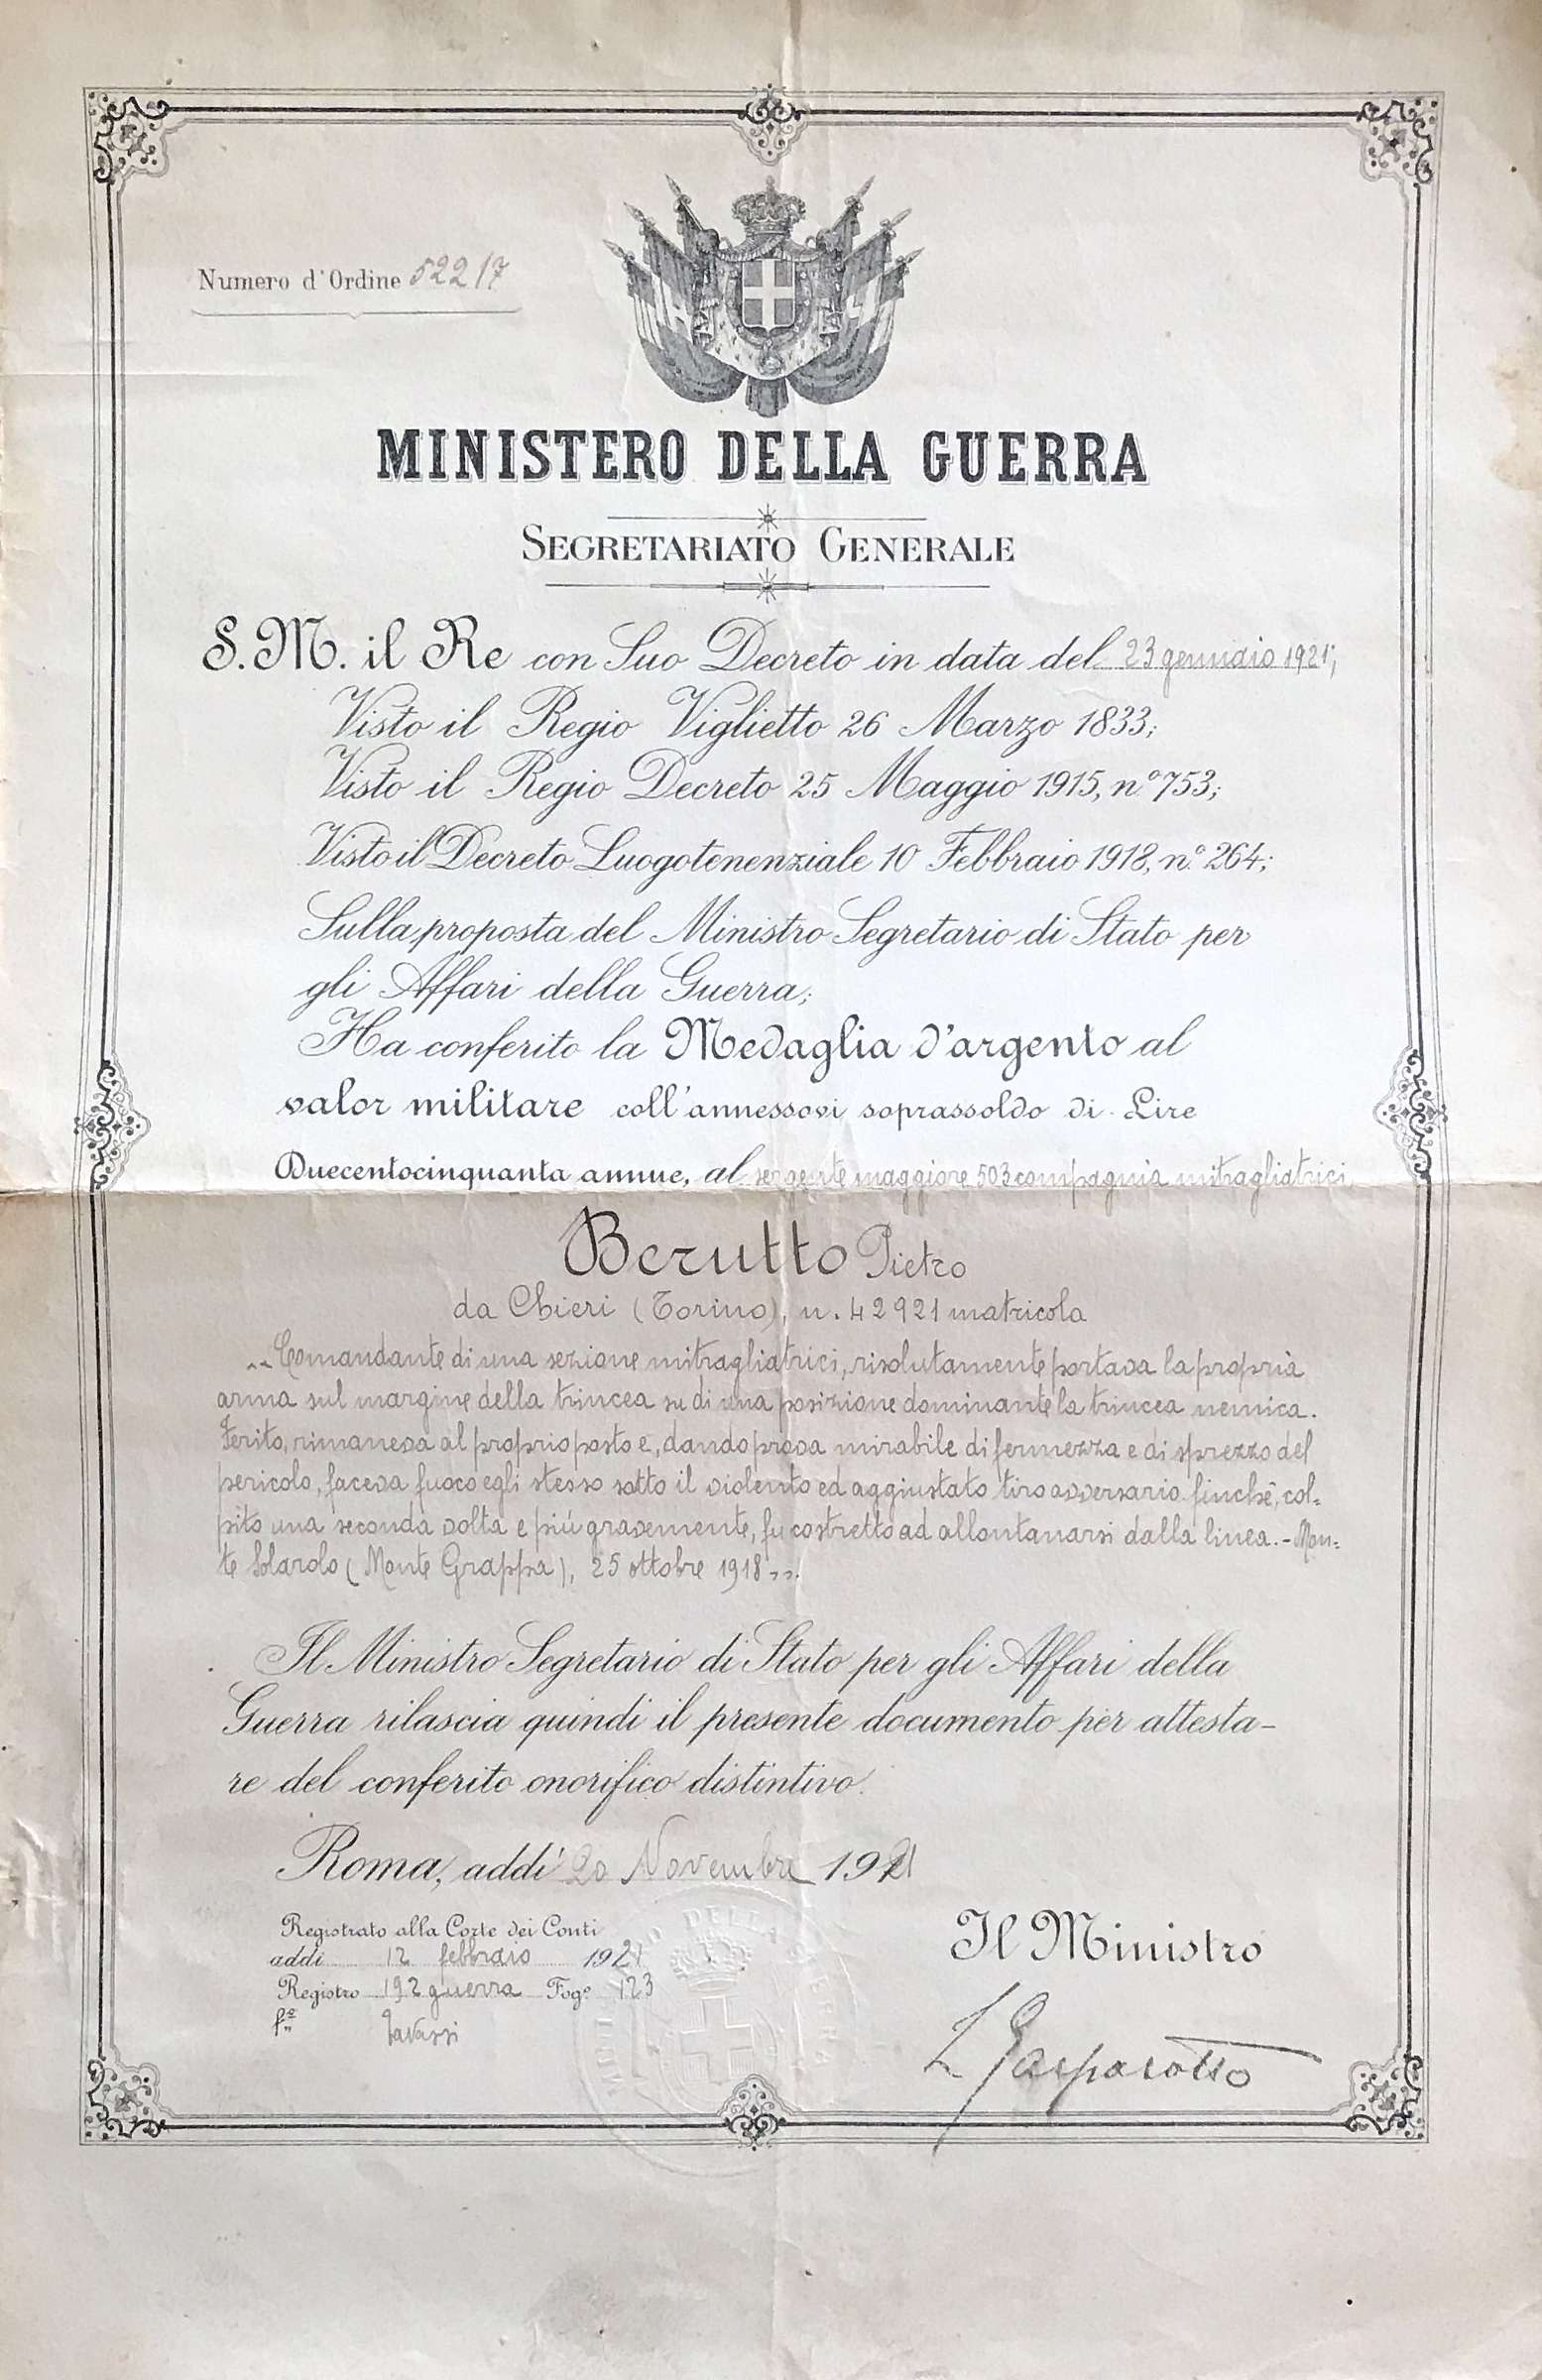 Numero d'Ordine 52217
MINISTERO DELLA GUERRA
SEGRETARIATO GENERALE
S. M. il Re con Suo Decreto in data del 23 gennaio 1921;
Visto il Regio Viglietto 26 Marzo 1833;
Visto il Regio Decreto 25 Maggio 1915, n.º 753;
Visto il Decreto Luogotenenziale 10 Febbraio 1918, n.º 264;
Sulla proposta del Ministro Segretario di Stato per
gli Affari della Guerra;
Ha conferito la Medaglia d'argento al
valor militare coll'annessovi soprassoldo di Lire
Duecentocinquanta annue, al sergente maggiore 503 compagnia mitragliatrici
Berutto Pietro
da Chieri (Torino), n. 42921 matricola
„Comandante di una sezione mitragliatrici, risolutamente portava la propria
arma sul margine della trincea su di una posizione dominante la trincea nemica.
Ferito, rimaneva al proprio posto e, dando prova mirabile di fermezza e di sprezzo del
pericolo, faceva fuoco egli stesso sotto il violento ed aggiustato tiro avversario finchè, col=
pito una seconda volta e più gravemente, fu costretto ad allontanarsi dalla linea. - Mon=
te Solarolo (Monte Grappa), 25 ottobre 1918„.
Il Ministro Segretario di Stato per gli Affari della
Guerra rilascia quindi il presente documento per attesta-
re del conferito onorifico distintivo.
Roma, addì 20 Novembre 1921
Registrato alla Corte dei Conti
addì 12 febbraio 1921
Registro 192 guerra Fogº 123
fº
Il Ministro
L Gasparotto